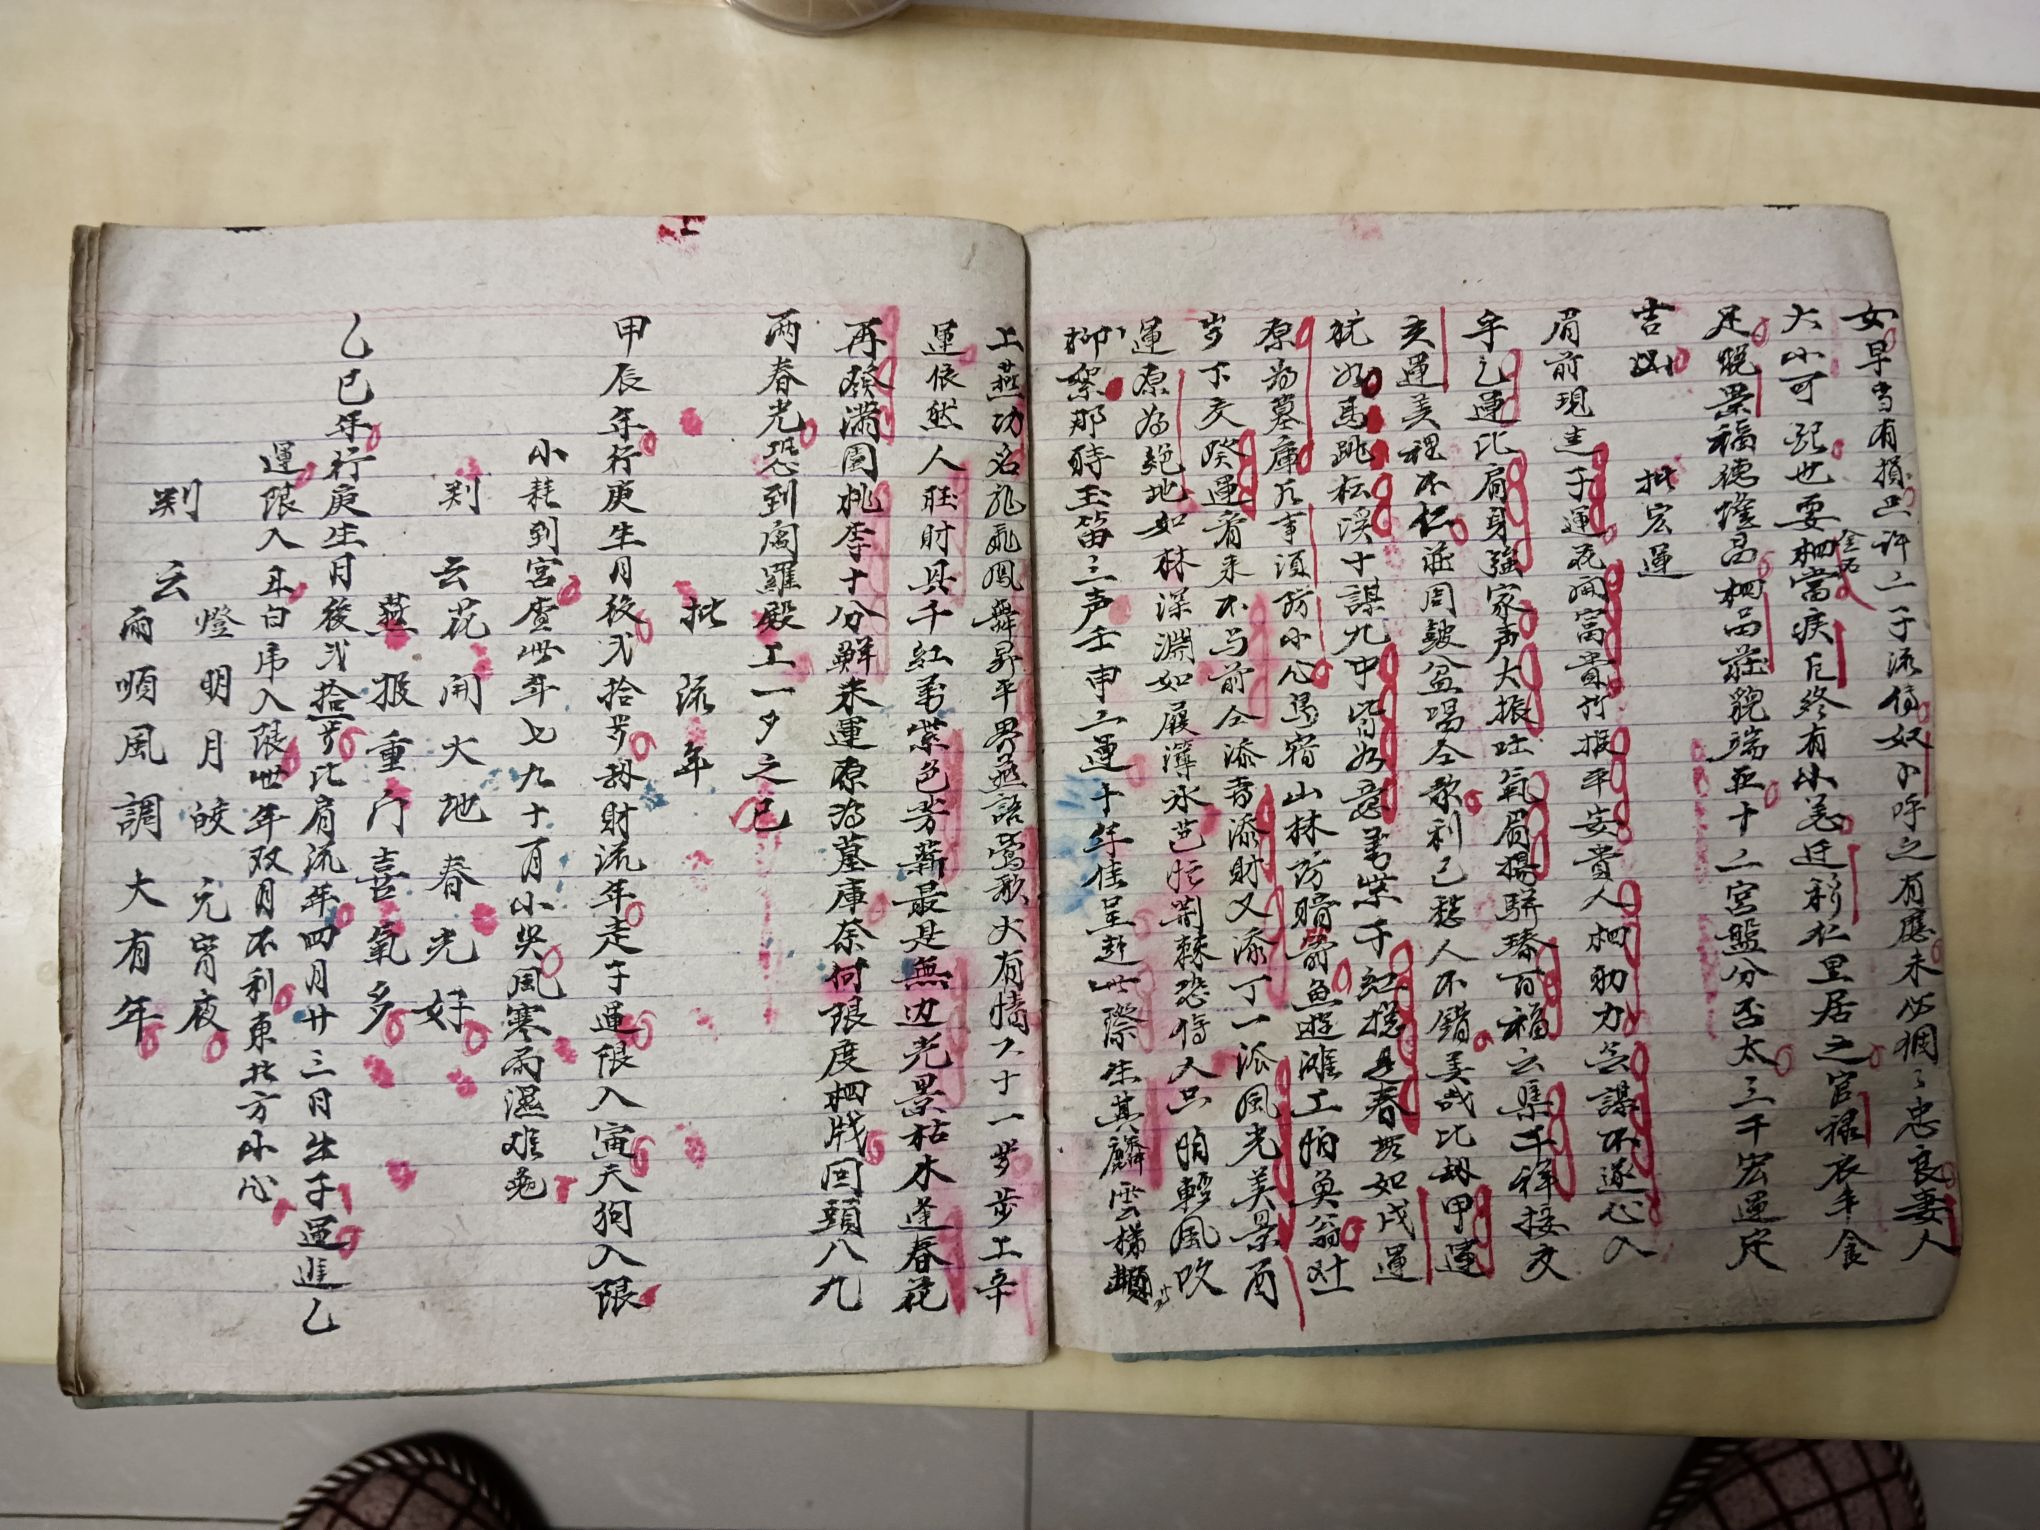 女早当有損出許二子流傳奴小呼之有應未必個〻忠良妻人
大小可配也要相當疾厄終有小恙迁移仁里居之官禄衣丰食
金石
足晚景福德愷昌相苗莊貌端正十二宮盤分否太三千宏運定
吉凶
批宏運
眉前現走子運花開富貴竹报平安貴人相助力營謀不遂心入
乎乙運比肩身強家声大振吐氣眉揚駢臻百福云集千祥接交
亥運美裡不仁莊周鼓盆唱全歌利己愁人不錯美哉比刼甲運
就如馬跳松溪十謀九中皆如意萬紫千紅摠是春無如戌運
原為墓庫凡事須防小心鳥宿山林防暗箭魚遊灘工怕奐翁过
岁下交癸運看来不与前仝添喜添財又添丁一派風光美景酉
運原為絶地如林深淵如履薄冰芒忙荆棘恐傷人只怕輕風吹
柳絮那時玉笛三声壬申二運十年佳呈趂此際朱其麟雲梯
上燕功名龍飛鳳舞昇平界燕語鶯歌大有情六十一岁步工辛
運依然人旺財具千紅萬紫色芳薪最是無边光景枯木逢春花
再發满園桃李十分鮮未運原為墓庫奈何限度相戕回頭八九
兩春光恐到阎羅殿工一夕之已
批 流 年
甲辰年行庚生月後弍拾岁刼財流年走子運限入寅天狗入限
小耗到宮度此年七九十月小災風寒雨濕难免
判 云 花開大地春光好
燕报重门喜氣多
乙巳年行庚生月後弍拾岁比肩流年四月廿三日生子運進乙
運限入丑白帍入限此年双月不利東北方小心
判 云 燈明月皎元宵夜
雨順風調大有年